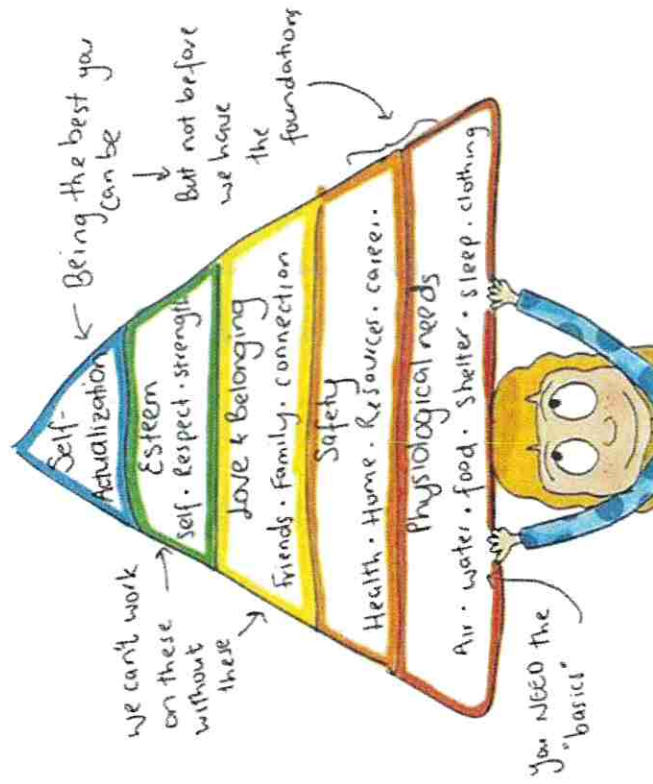 Being the best you
can be
But not before
we have
the
foundations
Self-
Actualization
Esteem
Self · Respect · strength
Love + Belonging
Friends · Family · connection
Safety
Health · Home · Resources · career
Physiological needs
Air · water · food · Shelter · sleep · clothing
We can't work
on these
without
these
you NEED the
"basics"